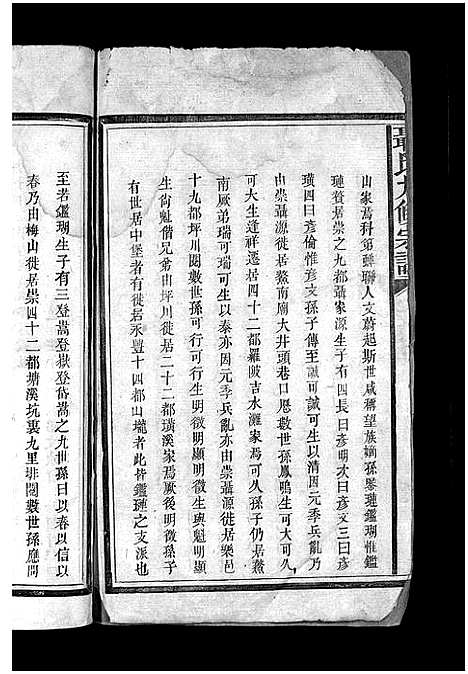 聶氏九修宗譜
山家焉科第蟬聯人文蔚起斯世咸稱望族嫡孫恩璉鑑瑚惟鑑
璉贅居崇之九都聶家源生子有四長曰彥明次曰彥三曰彥
瓆四曰彥倫惟彥文孫子傳至誠可誠可生以清因元季兵亂乃
由崇聶源徙居鰲南廟大井頭巷口歷數世孫鳳鳴生可大可久
可大生逢祥遷居四十二都羅陂吉水灘家焉可久孫子仍居鰲
南厥弟瑞可瑞可生以泰亦因元季兵亂亦由崇聶源徙居樂邑
十九都坪川閱數世孫可行可行生明徵明顯明徵生與魁明顯
生尙魁偕兄弟由坪川徙居二十二都璜溪家焉厥後明徵孫子
有世居中堡者有徙居永豐十四都山壠者此皆鑑璉之支派也
至若鑑瑚生子有三登嵩登嶽登岱嵩之九世孫曰以春以信以
春乃由梅山徙居崇四十二都塘溪坑裏九里排閱數世孫應問